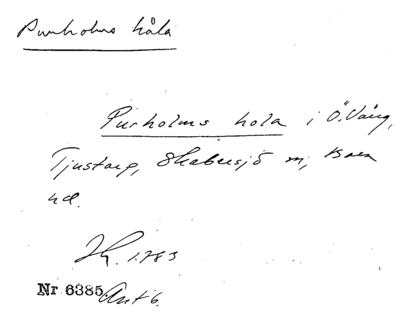 Purholms håla
Purholms hola i Ö. Vång,
Tjustorp, Skabersjö sn, Bara
hd.
Jh. 1783
Nr 6385 Ant 6.